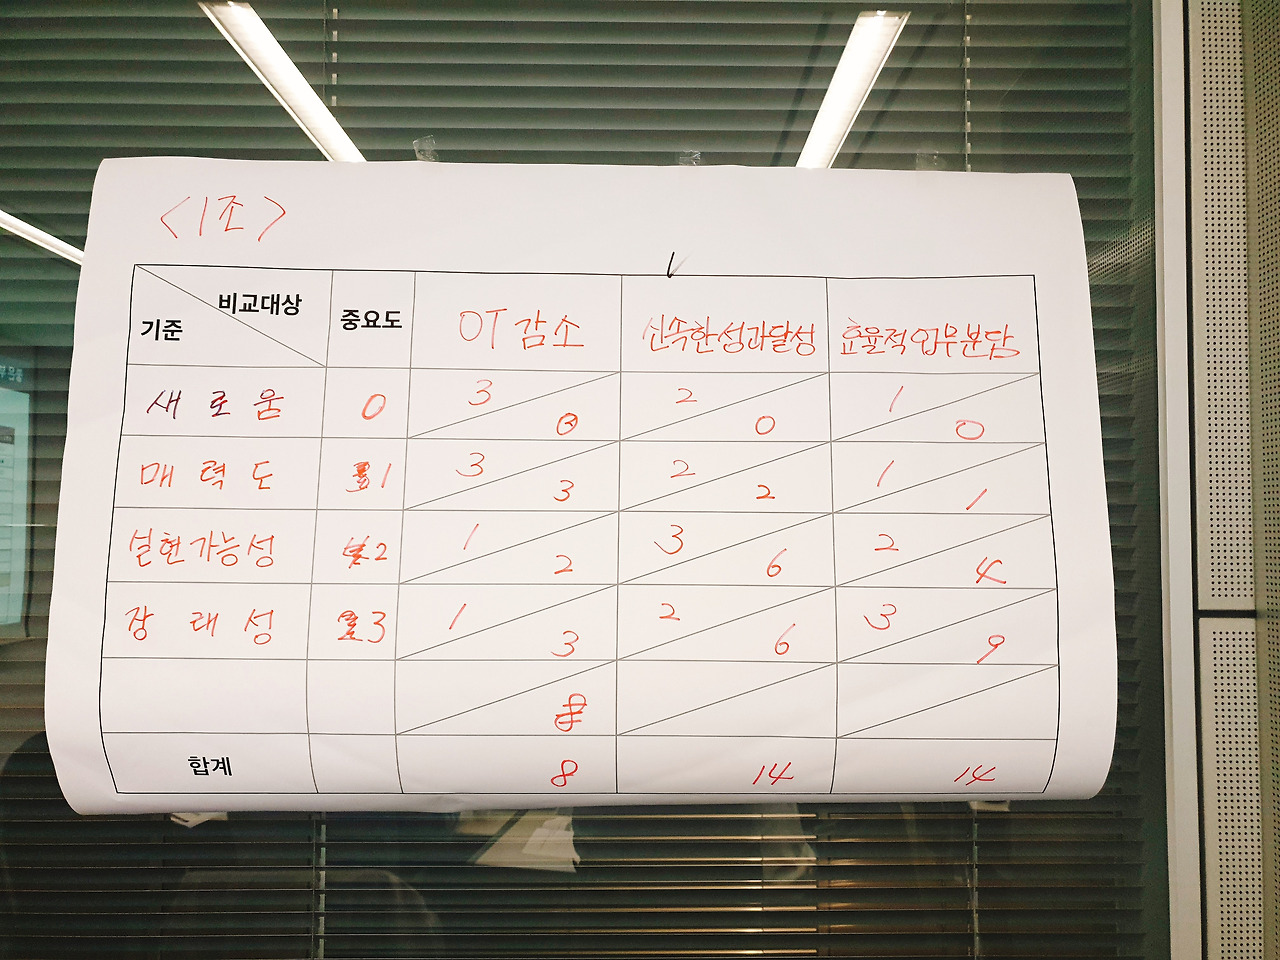 <1조>
비교대상
기준
중요도
OT 감소
신속한성과달성
효율적업무분담
새로움 0 3 0 2 0 1 0
매력도 1 3 3 2 2 1 1
실현가능성 2 1 2 3 6 2 4
장래성 3 1 3 2 6 3 9
합계 8 14 14